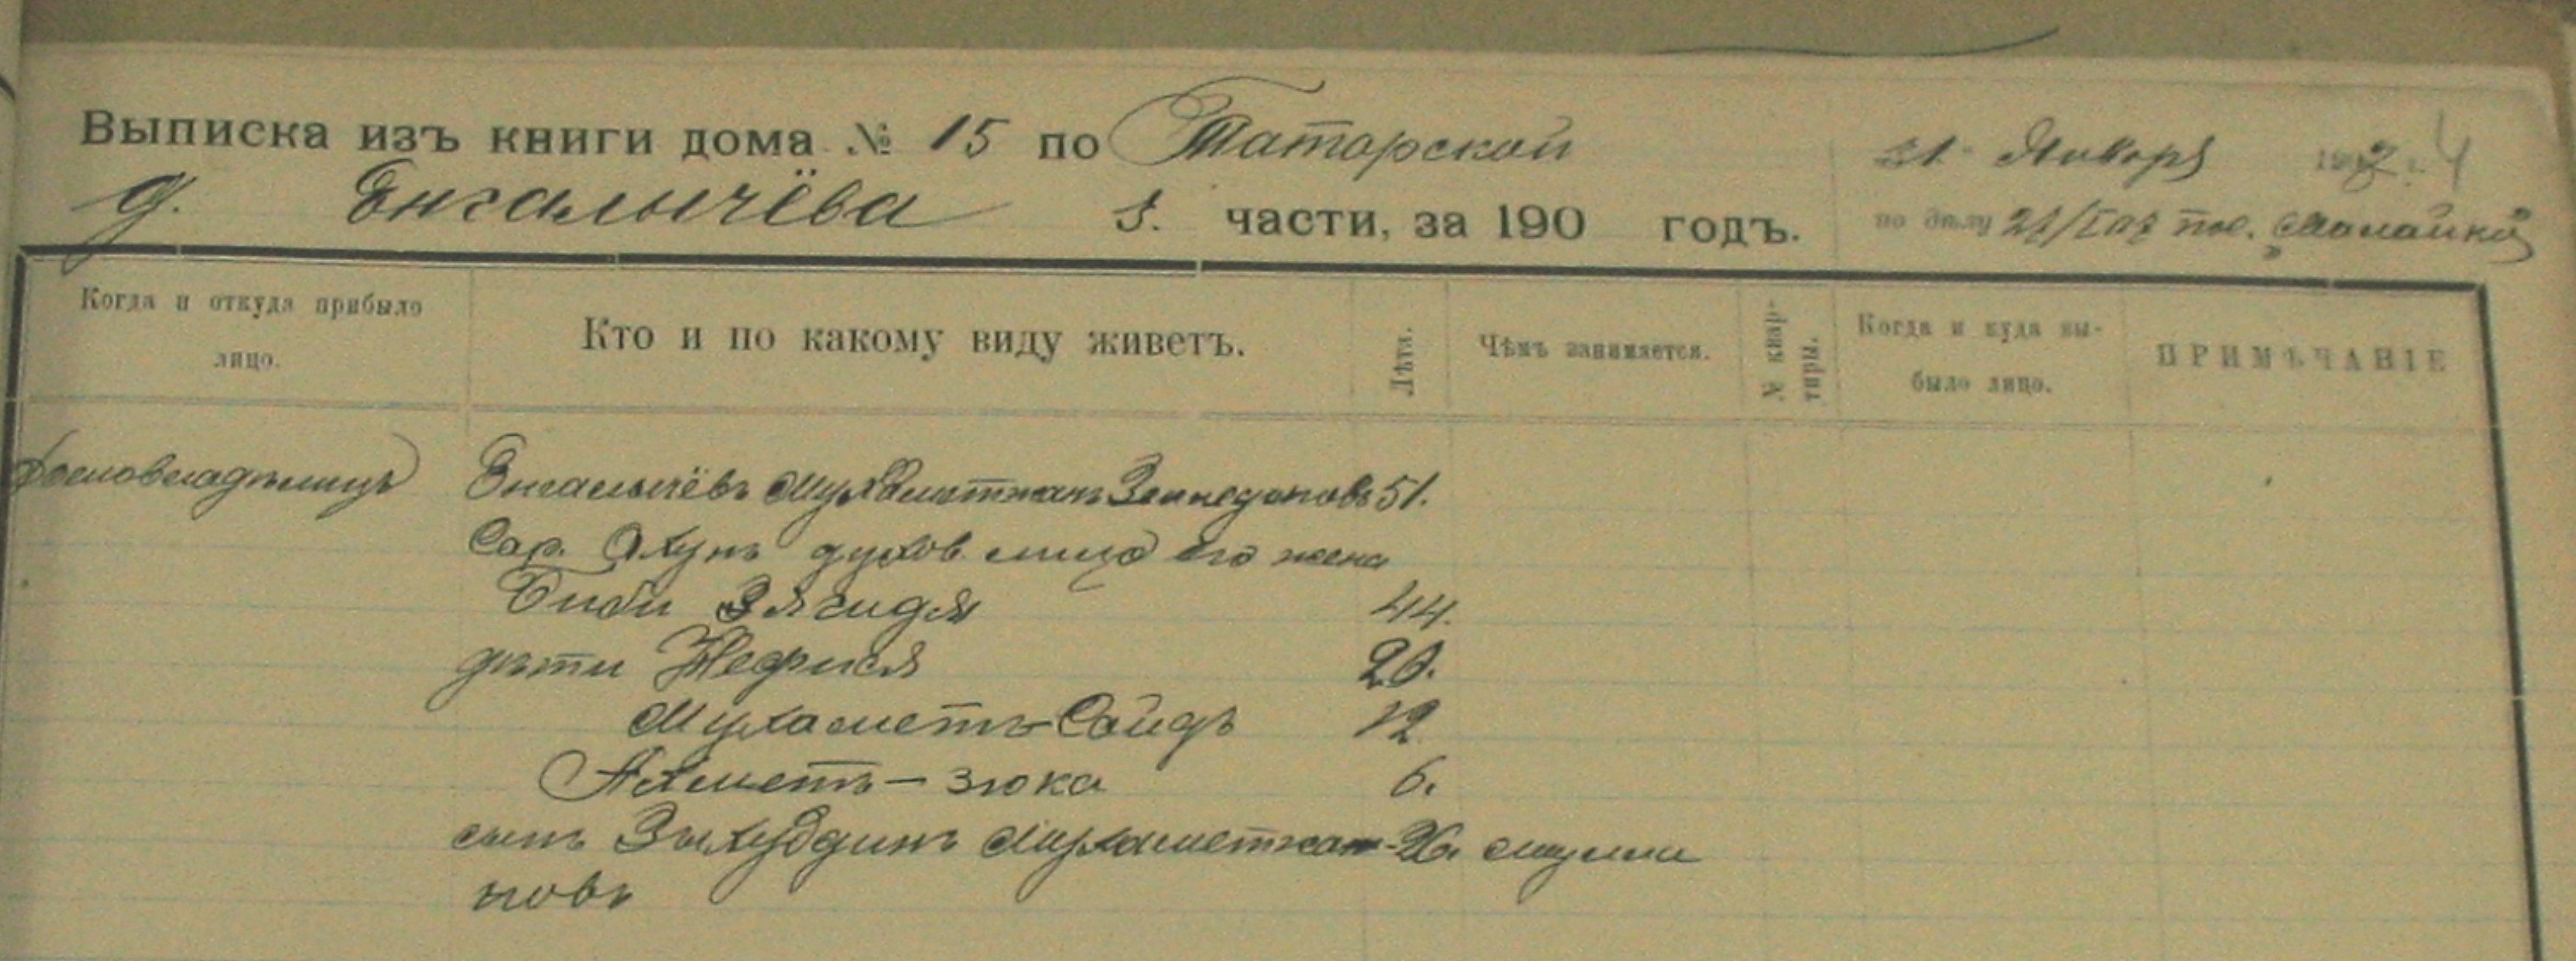 Выписка изъ книги дома № 15 по Татарской
д. Енгалычёва 5. части, за 190 годъ.
21 Января 4
по дѣлу
Когда и откуда прибыло лицо.
Кто и по какому виду живетъ.
Лѣта.
Чѣмъ занимается.
№ квартиры.
Когда и куда выбыло лицо.
ПРИМѢЧАНІЕ
Домовладѣлицъ Енгалычёвъ Мухаметжанъ 51.
Сар. Ахунъ духов лицо его жена
Биби Зягидя 44.
дѣти Нефися 20.
Мухаметъ-Саидъ 12
Ахметъ-зюка 6.
сынъ Мухаметжан- 26.
новъ